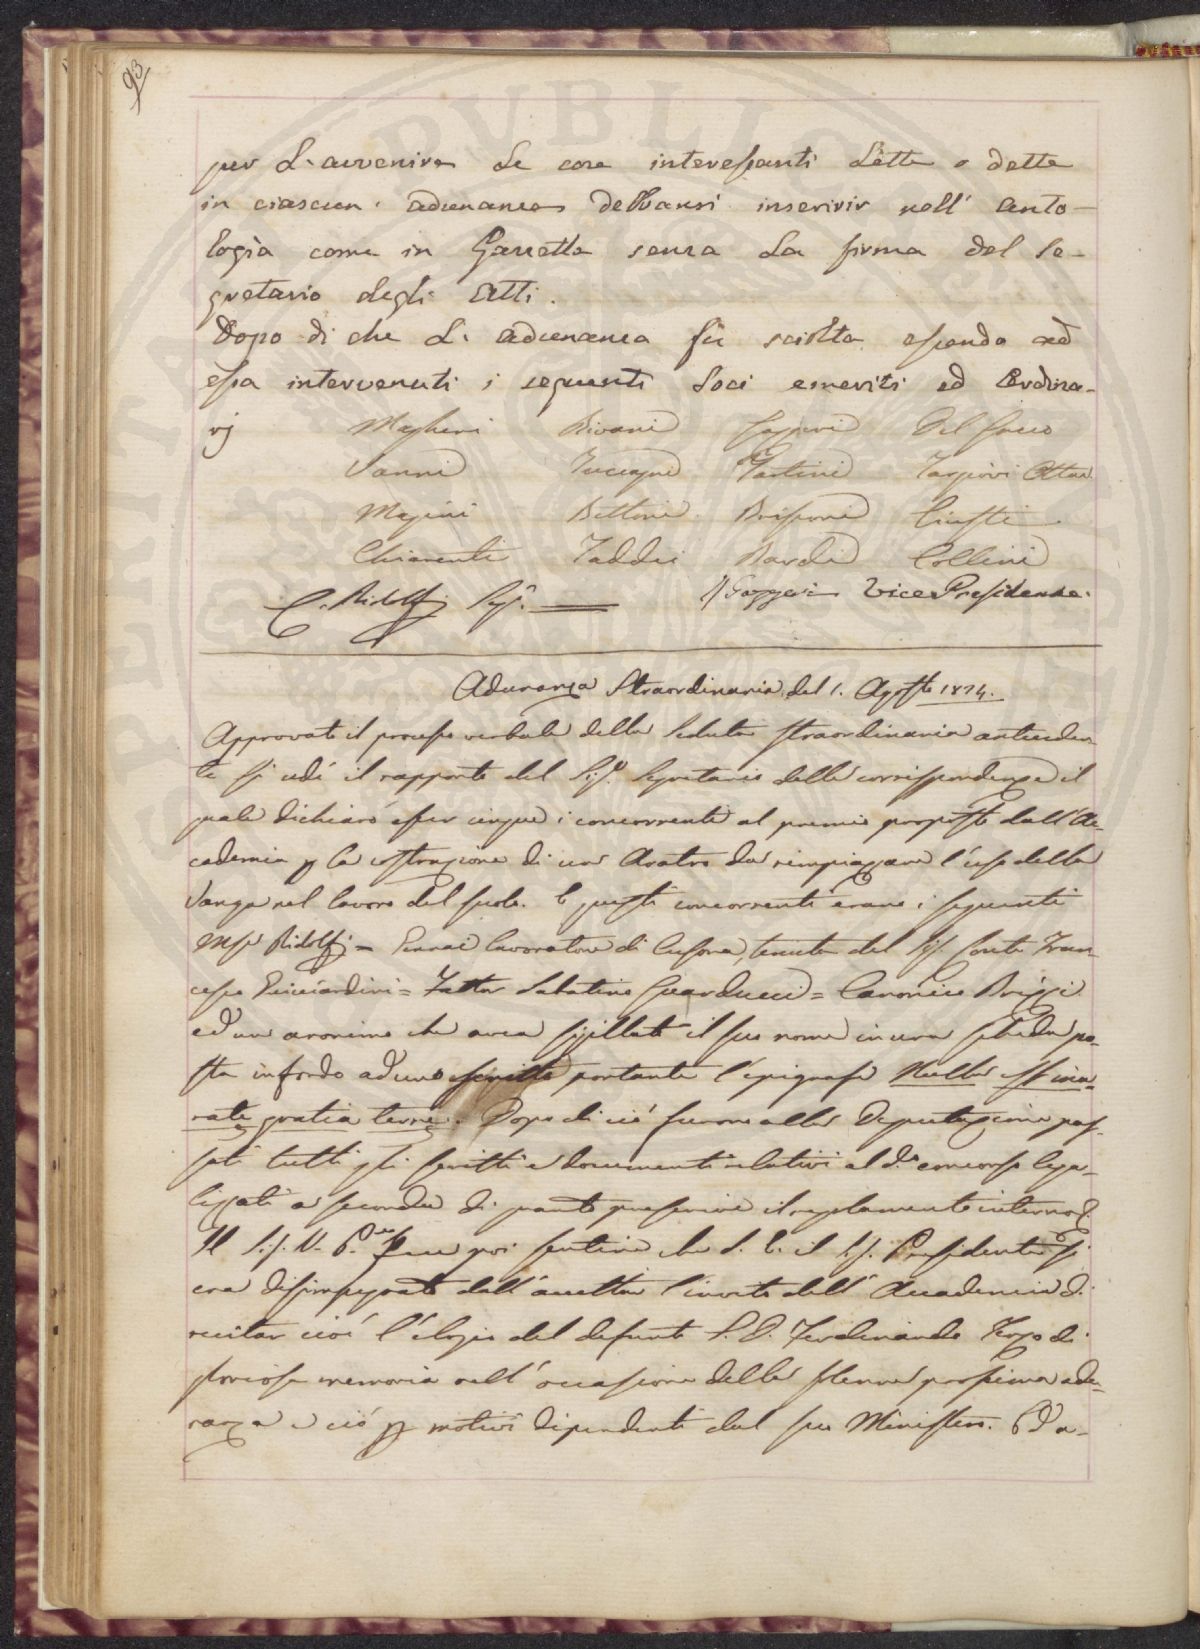 93
per l'avvenire le cose interessanti lette o dette
in ciascun' adunanza debbansi inserirsi nell' Anto-
logia come in Gazzetta senza la firma del Se-
gretario degli Atti.
Dopo di che l' adunanza fù sciolta essendo ad
essa intervenuti i seguenti Soci emeriti ed Ordina-
rj Magheri Rivani Gazzeri Del Greco
Vanni Zuccagni Tartini Targioni Ottav.
Mazzini Bettoni Brisponi Giusti
Chiarenti Taddei Nardi Collini
C. Ridolfi Seg.º G Gazzeri Vice Presidente.
Adunanza Straordinaria del 1. Agosto 1824.
Approvato il processo verbale della Seduta straordinaria anteceden-
te si udì il rapporto del Sig.r Segretario delle corrispondenze il
quale dichiarò esser cinque i concorrenti al premio proposto dall'Ac-
cademia p la costruzione di un Aratro da rimpiazzare l'uso della
Vanga nel lavoro del suolo. E questi concorrenti erano i seguenti
March. Ridolfi = lavoratore di Cusona, tenuta del Sig. Conte Fran-
cesco Guicciardini = Fattor Sabatino Guarducci = Canonico Brizzi
ed un anonimo che avea sigillato il suo nome in una scheda po-
sta in fondo ad uno scritto portante l'epigrafe Nulla est ina-
rate gratia terre. Dopo di ciò furono alla Deputazione pas-
sati tutti gli scritti e documenti relativi al d.º concorso lega-
lizzati a seconda di quanto prescrive il regolamento interno.
Il Sig. V. P. fece poi sentire che S. E. il Sig. Presidente si
era disimpegnato dall'accettar l'invito dell' Accademia di
recitar cioè l'elogio del defunto G. D. Ferdinando Terzo di
gloriosa memoria nell' occasione della solenne prossima adu-
nanza e ciò p motivi dipendenti dal suo Ministero. Ed a-